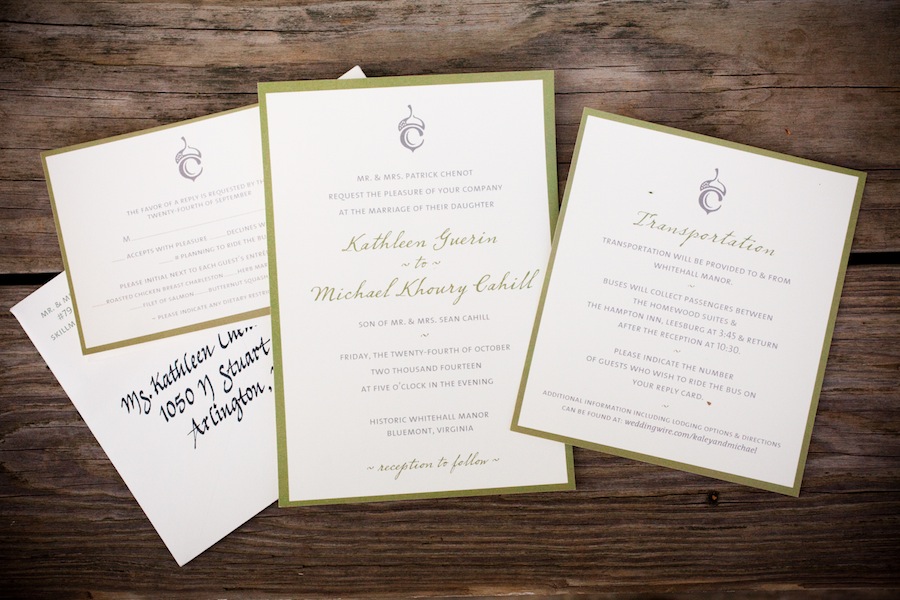 THE FAVOR OF A REPLY IS REQUESTED BY TH
TWENTY-FOURTH OF SEPTEMBER
M
ACCEPTS WITH PLEASURE DECLINES W
# PLANNING TO RIDE THE BU
PLEASE INITIAL NEXT TO EACH GUEST'S ENTRE
ROASTED CHICKEN BREAST CHARLESTON HERB MARI
FILET OF SALMON BUTTERNUT SQUASH
~ PLEASE INDICATE ANY DIETARY RESTRI
MR. &
#79
SKILLM
Ms. Kathleen Chen
1050 N Stuart
Arlington,
C
MR. & MRS. PATRICK CHENOT
REQUEST THE PLEASURE OF YOUR COMPANY
AT THE MARRIAGE OF THEIR DAUGHTER
Kathleen Guerin
~ to ~
Michael Khoury Cahill
SON OF MR. & MRS. SEAN CAHILL
~
FRIDAY, THE TWENTY-FOURTH OF OCTOBER
TWO THOUSAND FOURTEEN
AT FIVE O'CLOCK IN THE EVENING
HISTORIC WHITEHALL MANOR
BLUEMONT, VIRGINIA
~ reception to follow ~
C
Transportation
TRANSPORTATION WILL BE PROVIDED TO & FROM
WHITEHALL MANOR.
~
BUSES WILL COLLECT PASSENGERS BETWEEN
THE HOMEWOOD SUITES &
THE HAMPTON INN, LEESBURG AT 3:45 & RETURN
AFTER THE RECEPTION AT 10:30.
~
PLEASE INDICATE THE NUMBER
OF GUESTS WHO WISH TO RIDE THE BUS ON
YOUR REPLY CARD.
~
ADDITIONAL INFORMATION INCLUDING LODGING OPTIONS & DIRECTIONS
CAN BE FOUND AT: weddingwire.com/kaleyandmichael